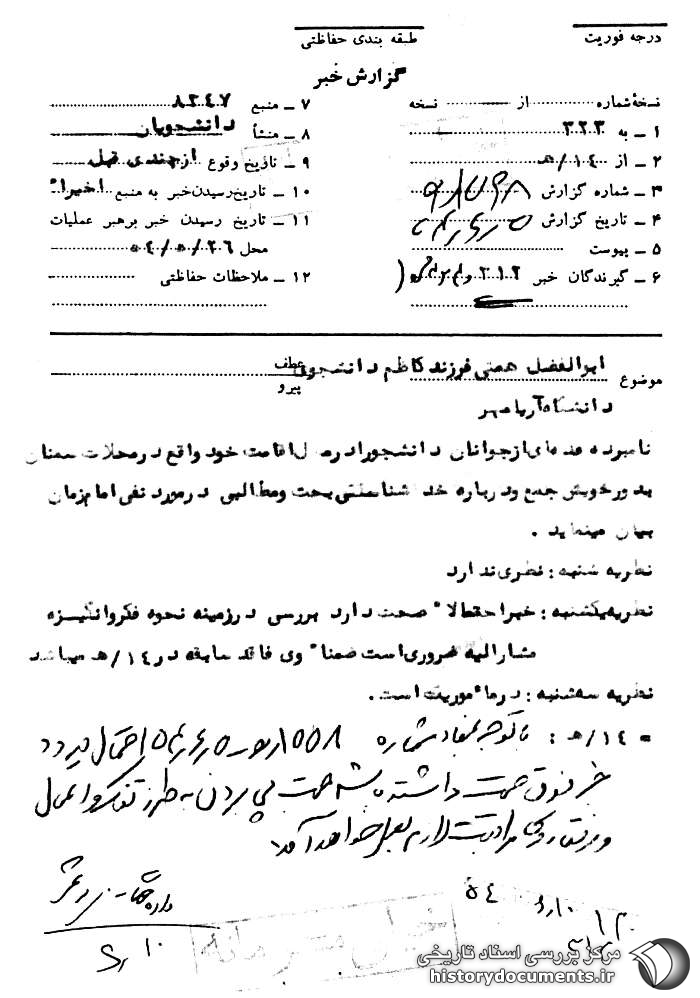 درجه فوریت
طبقه بندی حفاظتی
گزارش خبر
نسخهٔ شماره از نسخه
۱ ـ به ۳۲۳
۲ ـ از ۱۴/ه‍
۳ ـ شماره گزارش
۴ ـ تاریخ گزارش
۵ ـ پیوست
۶ ـ گیرندگان خبر ۳۱۲
۷ ـ منبع ۸۲۴۷
۸ ـ منشأ دانشجویان
۹ ـ تاریخ وقوع ازچندی قبل
۱۰ ـ تاریخ رسیدن خبر به منبع اخیراً
۱۱ ـ تاریخ رسیدن خبر برهبر عملیات
محل ۵۴/۵/۲۶
۱۲ ـ ملاحظات حفاظتی
موضوع ابوالفضل همتی فرزند کاظم دانشجوی عطف
پیرو
دانشگاه آریامهر
نامبرده عده‌ای ازجوانان دانشجورا در محل اقامت خود واقع در محلات سمنان
بدور خویش جمع و درباره خدا شناسی بحث و مطالبی در مورد نفی امام زمان
بیان مینماید .
نظریه شنبه : نظری ندارد
نظریه یکشنبه : خبر احتمالاً صحت دارد بررسی در زمینه نحوه فکر و انگیزه
مشارالیه ضروری است ضمناً وی فاقد سابقه در ۱۴/ه‍ میباشد
نظریه سه‌شنبه : در مأموریت است .
۱۴/ه‍ : با توجه بمفاد شماره احتمال دارد
خبر فوق صحت داشته باشد جهت پی بردن به طرز تفکر و اعمال
و رفتار وی مراقبت لازم بعمل خواهد آمد
۵۴
خیلی محرمانه
مرکز بررسی اسناد تاریخی
historydocuments.ir